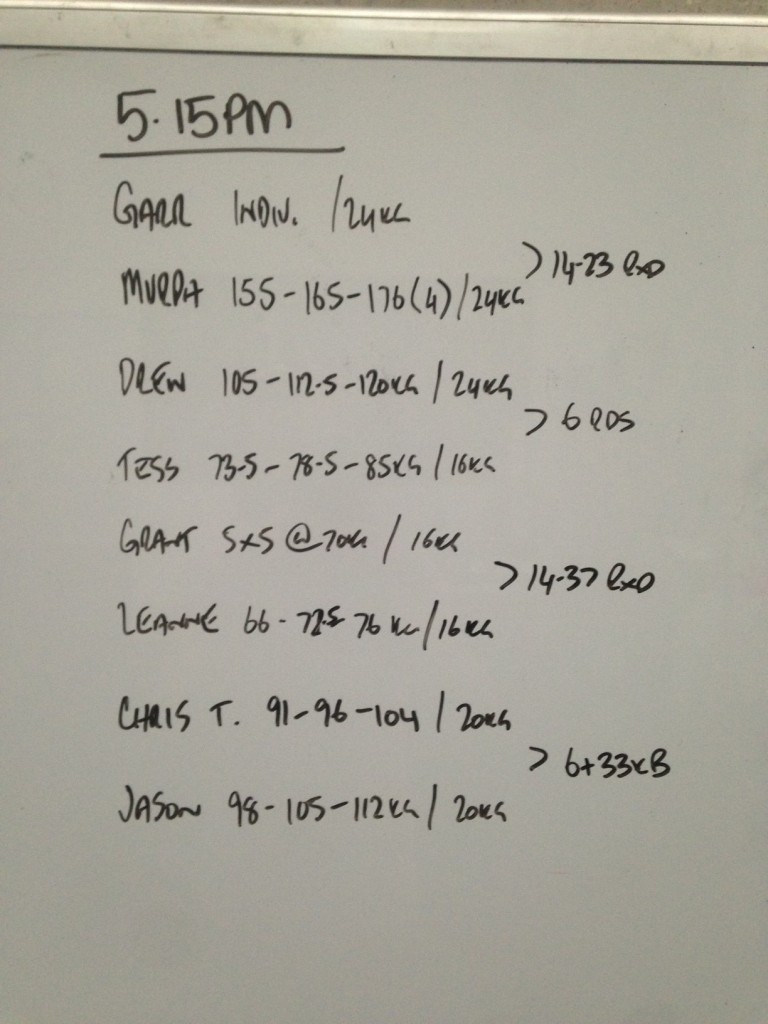 5.15PM
GARR INDIV. /24KG
MURPH 155-165-176(4)/24KG
> 14-23 RXD
DREW 105-112.5-120KG/24KG
> 6 RDS
TESS 73.5-78.5-85KG/16KG
GRANT 5x5 @70KG / 16KG
> 14-37 RXD
LEANNE 66-72.5 76 KG/16KG
CHRIS T. 91-96-104/20KG
> 6+33KB
JASON 98-105-112KG/20KG